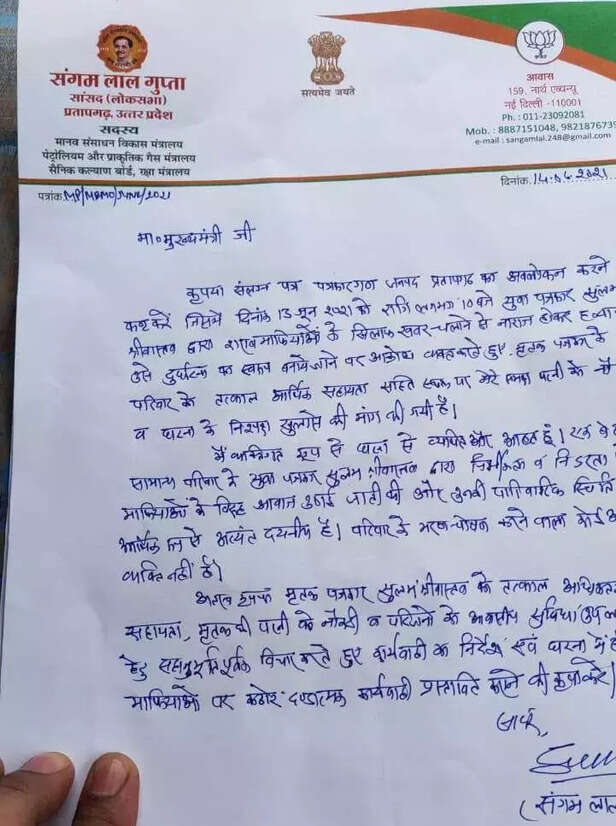 संगम लाल गुप्ता
सांसद (लोकसभा)
प्रतापगढ़, उत्तर प्रदेश
सदस्य
मानव संसाधन विकास मंत्रालय
पेट्रोलियम और प्राकृतिक गैस मंत्रालय
सैनिक कल्याण बोर्ड, रक्षा मंत्रालय
सत्यमेव जयते
आवास
159, नार्थ एवेन्यू
नई दिल्ली -110001
Ph. : 011-23092081
Mob. : 8887151048, 982187673
e-mail : sangamlal.248@gmail.com
पत्रांक MP/MEMO/JUNE/2021
दिनांक 14.06.2021
मा० मुख्यमंत्री जी
कृपया संलग्न पत्र पत्रकारगण जनपद प्रतापगढ़ का अवलोकन करने
कष्ट करें जिसमे दिनांक 13 जून 2021 को रात्रि लगभग 10 बजे युवा पत्रकार सुलभ
श्रीवास्तव द्वारा शराब माफियाओं के खिलाफ खबर चलाने से नाराज होकर हत्या
उसे दुर्घटना का स्वरूप बनाये जाने पर आक्रोश व्यक्त करते हुए मृतक पत्रकार के
परिवार के तत्काल आर्थिक सहायता सहित पत्नी के
व घटना के निष्पक्ष की मांग की गयी है।
मैं व्यक्तिगत रूप से घटना से व्यथित और आहत हूं। एक
सामान्य परिवार के युवा पत्रकार सुलभ श्रीवास्तव द्वारा निर्भीकता व निडरता
माफियाओं के विरुद्ध आवाज उठाई जाती थी और उनकी पारिवारिक स्थिति
आर्थिक रूप से अत्यंत दयनीय है। परिवार के भरण-पोषण करने वाला कोई
व्यक्ति नहीं है।
अतः कृपया मृतक पत्रकार सुलभ श्रीवास्तव को तत्काल आर्थिक
सहायता, मृतक की पत्नी को नौकरी व परिजनो के आवासीय सुविधा
हेतु सहानुभूतिपूर्वक विचार करते हुए कार्यवाही का निर्देश एवं घटना में
माफियाओं पर कठोर दण्डात्मक कार्यवाही प्रस्तावित करने की कृपा करें।
(संगम लाल